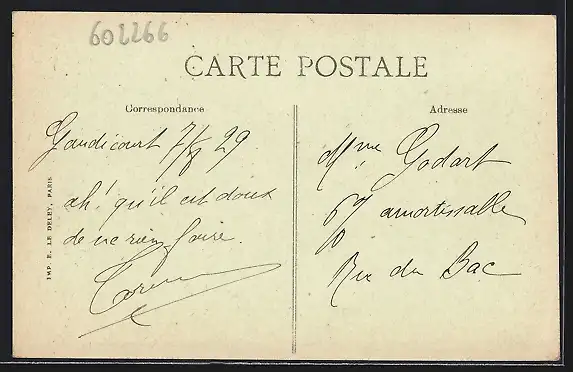 602266
CARTE POSTALE
Correspondance
Adresse
Gaudicourt 7/8 29
ah! qu'il est doux
de ne rien faire.
IMP. E. LE DELEY, PARIS
Mme Godart
amortissable
Rue du Bac